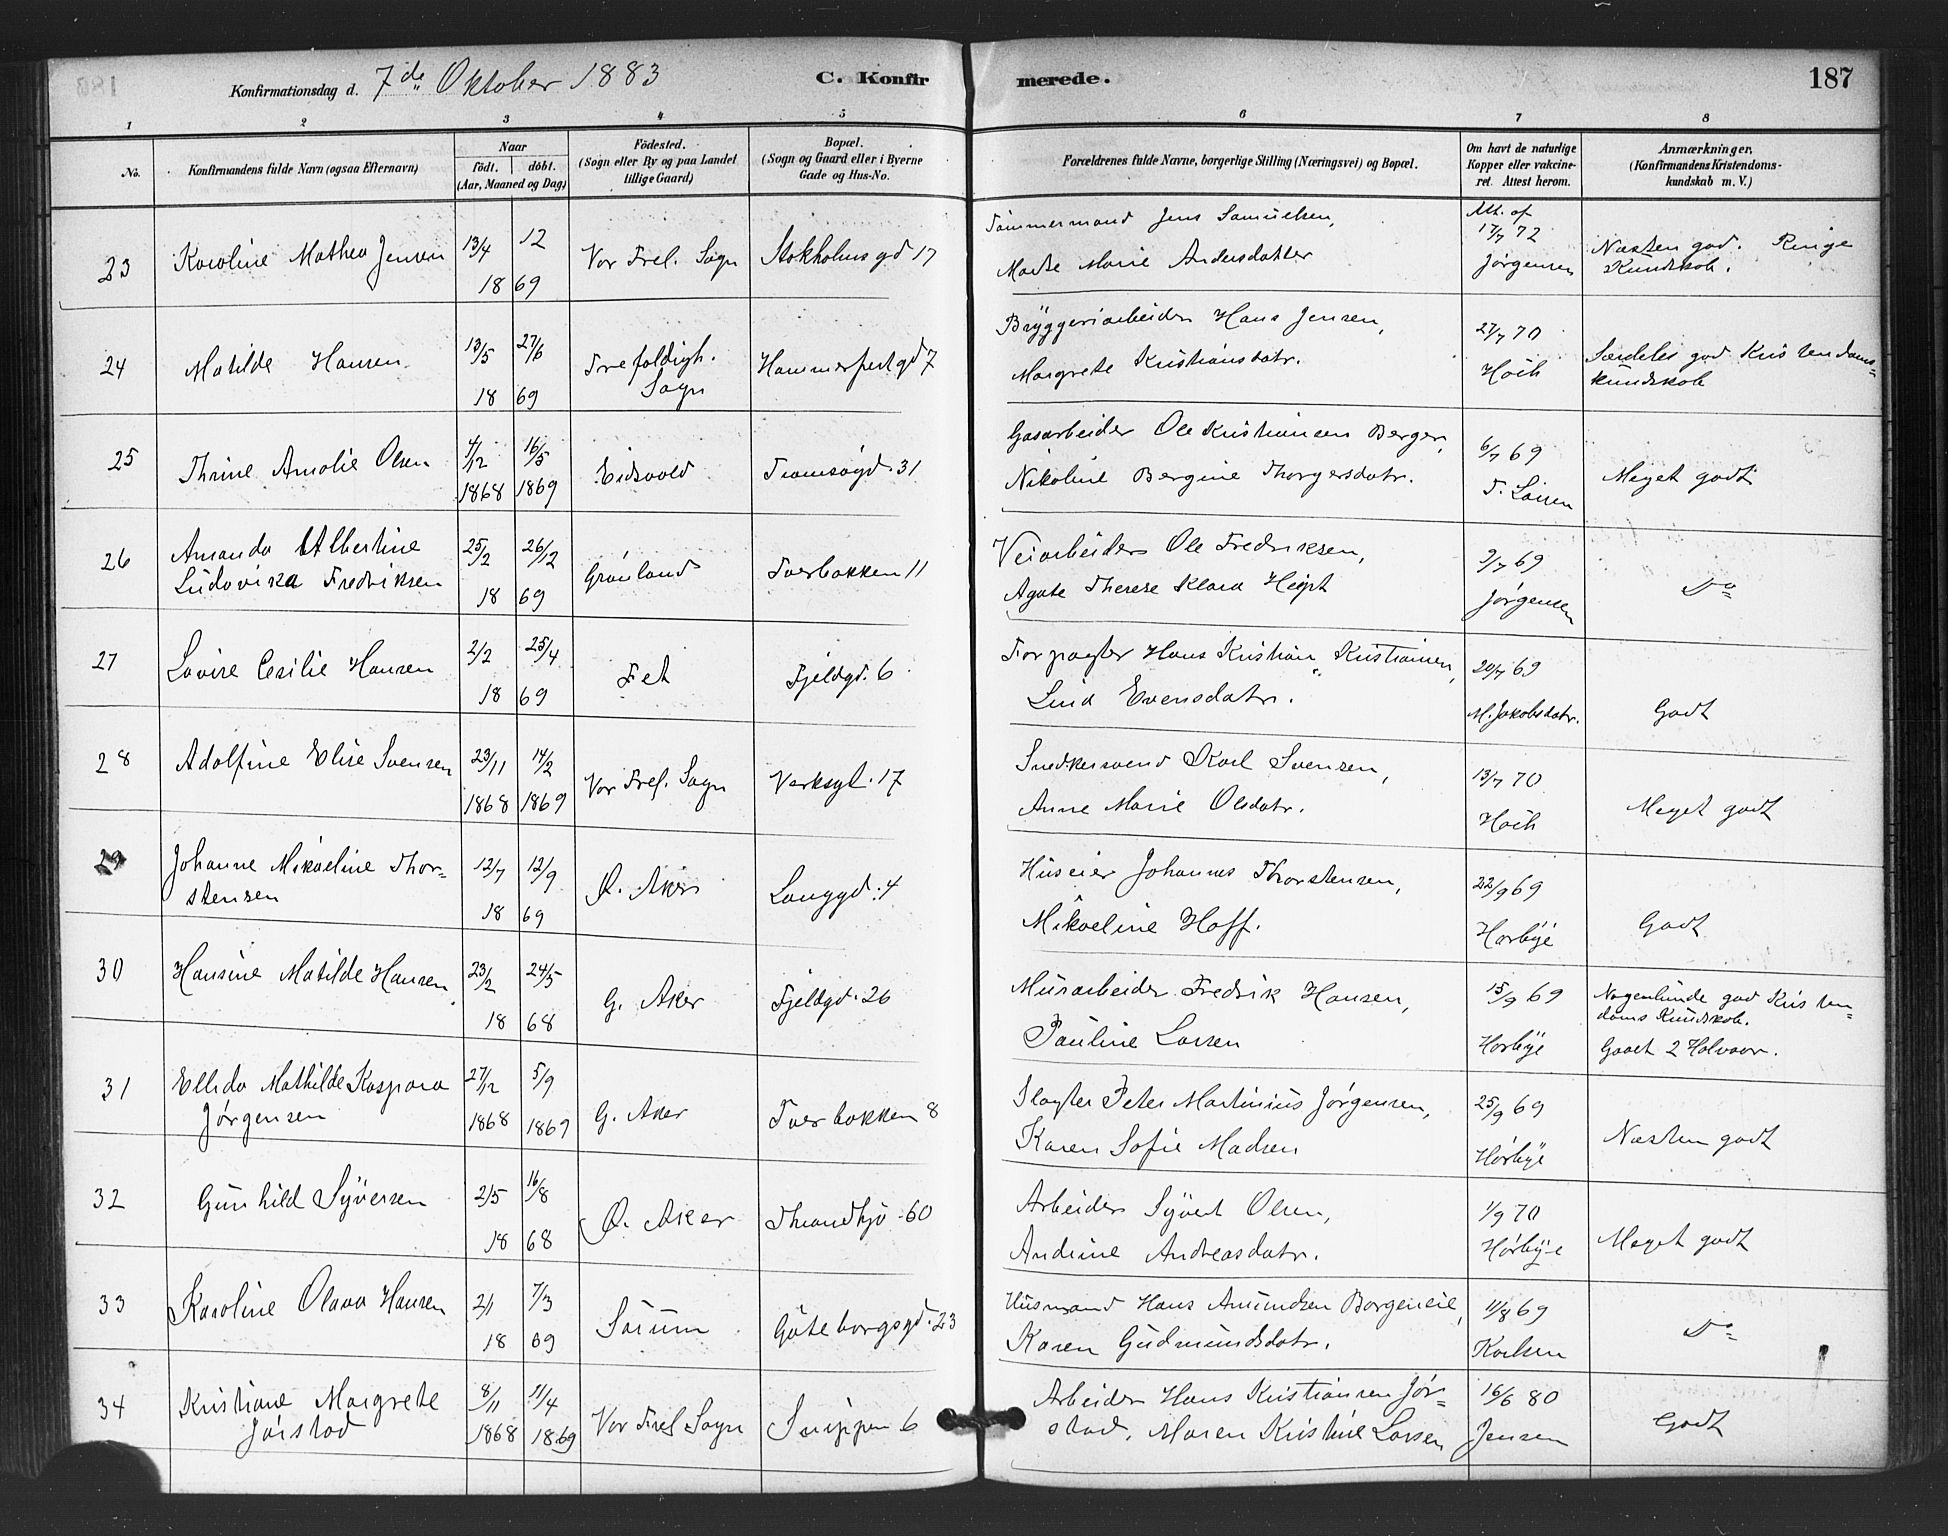 Konfirmationsdag d. 7de Oktober 1883 C. Konfir merede. 187
1 2 3 4 5 6 7 8
No. Konfirmandens fulde Navn (ogsaa Efternavn) Naar født. døbt. (Aar, Maaned og Dag) Födested. (Sogn eller By og paa Landet tillige Gaard) Bopæl. (Sogn og Gaard eller i Byerne Gade og Hus-No. Forældrenes fulde Navne, borgerlige Stilling (Næringsvei) og Bopæl. Om havt de naturlige Kopper eller vakcineret. Attest herom. Anmærkninger, (Konfirmandens Kristendomskundskab m. V.)
23 Karoline Mathea Jensen 13/4 12 18 69 Vor Frel. Sogn Stokholmsgd 17
Tømmermand Jens Samuelsen,
Marte Marie Andersdatter
Att. af 17/7 72 Jørgensen
Næsten god. Ringe
Kundskab.
24 Matilde Hansen 13/5 27/6 18 69 Trefoldigh. Sogn Hammerfestgd 7
Bryggeriarbeider Hans Jensen,
Margrete Kristiansdatr.
27/7 70 Höth
Særdeles god Kristendoms=
kundskab
25 Thrine Amalie Olsen 4/12 1868 16/5 1869 Eidsvold Tromsøgd. 31
Gasarbeider Ole Kristiansen Berger,
Nikoline Bergine Thorgersdatr.
6/7 69 T. Larsen
Meget godt
26 Amanda Albertine
Ludovika Fredriksen 25/2 26/12 18 69 Grønland Tverbakken 11
Veiarbeider Ole Fredriksen,
Agate Therese Klara
9/7 69 Jørgensen
Do
27 Lovise Cesilie Hansen 2/2 25/4 18 69 Fet Fjeldgd. 6
Forpagter Hans Kristian Kristiansen,
Lina Evensdatr.
20/7 69 M. Jakobsdatr.
Godt
28 Adolfine Elise Svensen 23/11 1868 14/2 1869 Vor Frel. Sogn Verksgt. 17
Snedkersvend Karl Svensen,
Anne Marie Olsdatr.
13/7 70 Höth
Meget godt
29 Johanne Mikaeline Thor=
stensen 12/7 12/9 18 69 Ø. Aker Langgd. 4
Huseier Johannes Thorstensen,
Mikaeline Hoff.
22/9 69 Hørbye
Godt
30 Hansine Matilde Hansen 23/2 24/5 18 68 G. Aker Fjeldgd. 26
Murarbeider Fredrik Hansen,
Pauline Larsen
15/9 69 Hørbye
Nogenlunde god Kristen=
doms Kundskab.
Gaaet 2 Halvaar.
31 Ellida Mathilde Kaspara
Jørgensen 27/12 1868 5/9 1869 G. Aker Tverbakken 8
Slagter Peter Martinius Jørgensen,
Karen Sofie Madsen
25/9 69 Hørbye
Næsten godt
32 Gunhild Syversen 2/5 16/8 18 68 Ø. Aker Throndhjv. 60
Arbeider Syvert Olsen,
Andrine Andreasdatr.
1/9 70 Hørbye
Meget godt
33 Karoline Olava Hansen 2/1 7/3 18 69 Sørum Göteborgsgd. 23
Husmand Hans Amundsen Borgeneie,
Karen Gudmundsdatr.
11/8 69 Karlsen
Do
34 Kristiane Margrete
Jørstad 8/11 1868 11/4 1869 Vor Frel. Sogn Snippen 6
Arbeider Hans Kristiansen Jør=
stad, Maren Kristine Larsen
16/6 80 Jensen
Godt